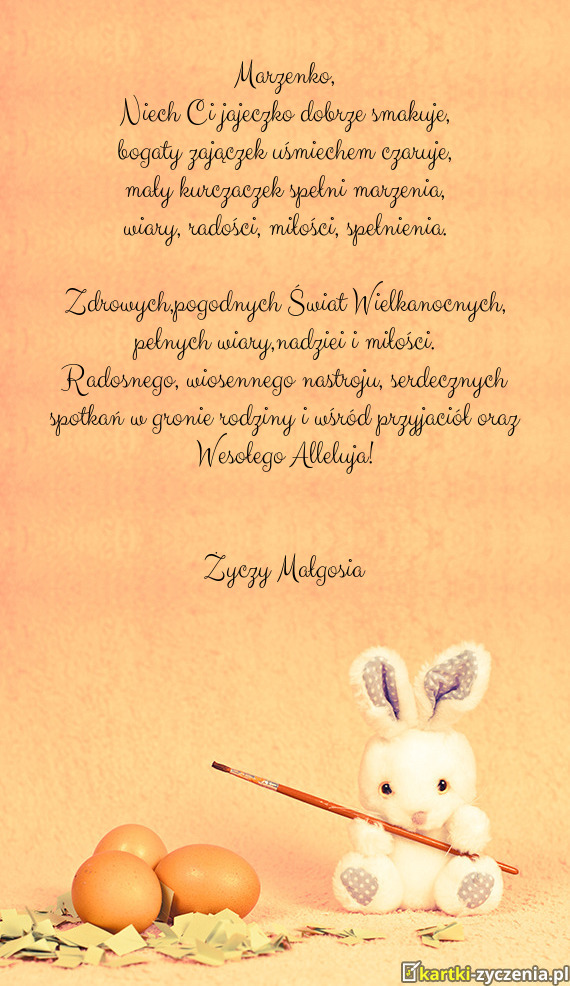 Marzenko,
Niech Ci jajeczko dobrze smakuje,
bogaty zajączek uśmiechem czaruje,
mały kurczaczek spełni marzenia,
wiary, radości, miłości, spełnienia.
Zdrowych,pogodnych Świat Wielkanocnych,
pełnych wiary,nadziei i miłości.
Radosnego, wiosennego nastroju, serdecznych
spotkań w gronie rodziny i wśród przyjaciół oraz
Wesołego Alleluja!
Życzy Małgosia
kartki-zyczenia.pl